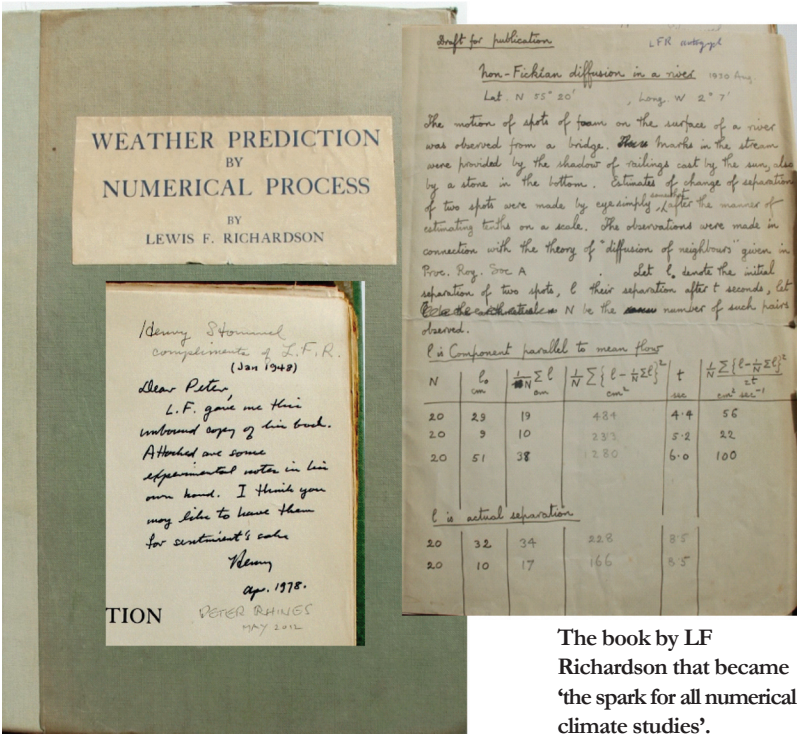 WEATHER PREDICTION
BY
NUMERICAL PROCESS
BY
LEWIS F. RICHARDSON
Henry Stommel
compliments of L.F.R.
(Jan 1948)
Dear Peter,
L.F. gave me this
unbound copy of his book.
Attached are some
experimental notes in his
own hand. I think you
may like to have them
for sentiment's sake
Henry
Apr. 1978.
TION
PETER RHINES
MAY 2012
Draft for publication
LFR autograph
Non-Fickian diffusion in a river 1930 Aug.
Lat. N 55° 20' , Long. W 2° 7'
The motion of spots of foam on the surface of a river
was observed from a bridge. Marks in the stream
were provided by the shadow of railings cast by the sun, also
by a stone in the bottom. Estimates of change of separation
of two spots were made by eye simply, after the manner of
estimating tenths on a scale. The observations were made in
connection with the theory of "diffusion of neighbours" given in
Proc. Roy. Soc A . Let l₀ denote the initial
separation of two spots, l their separation after t seconds, let
N be the number of such pairs
observed.
l is Component parallel to mean flow
N l₀ cm 1/N Σ l cm 1/N Σ {l - 1/N Σl}² cm² t sec 1/N Σ {l - 1/N Σl}² / 2t cm² sec⁻¹
20 29 19 484 4.4 56
20 9 10 233 5.2 22
20 51 38 1280 6.0 100
l is actual separation
20 32 34 228 8.5
20 10 17 166 3.5
The book by LF
Richardson that became
‘the spark for all numerical
climate studies’.